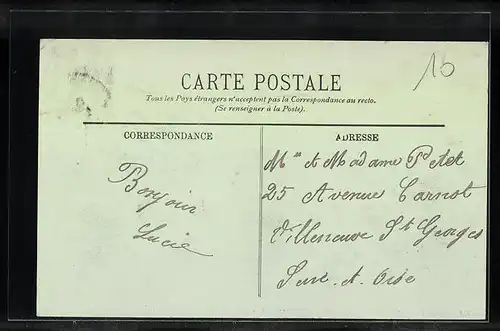 10
CARTE POSTALE
Tous les Pays étrangers n'acceptent pas la Correspondance au recto.
(Se renseigner à la Poste).
CORRESPONDANCE
ADRESSE
Bonjour
Lucie
Mr et Madame
25 Avenue Carnot
Villeneuve St Georges
Seine et Oise